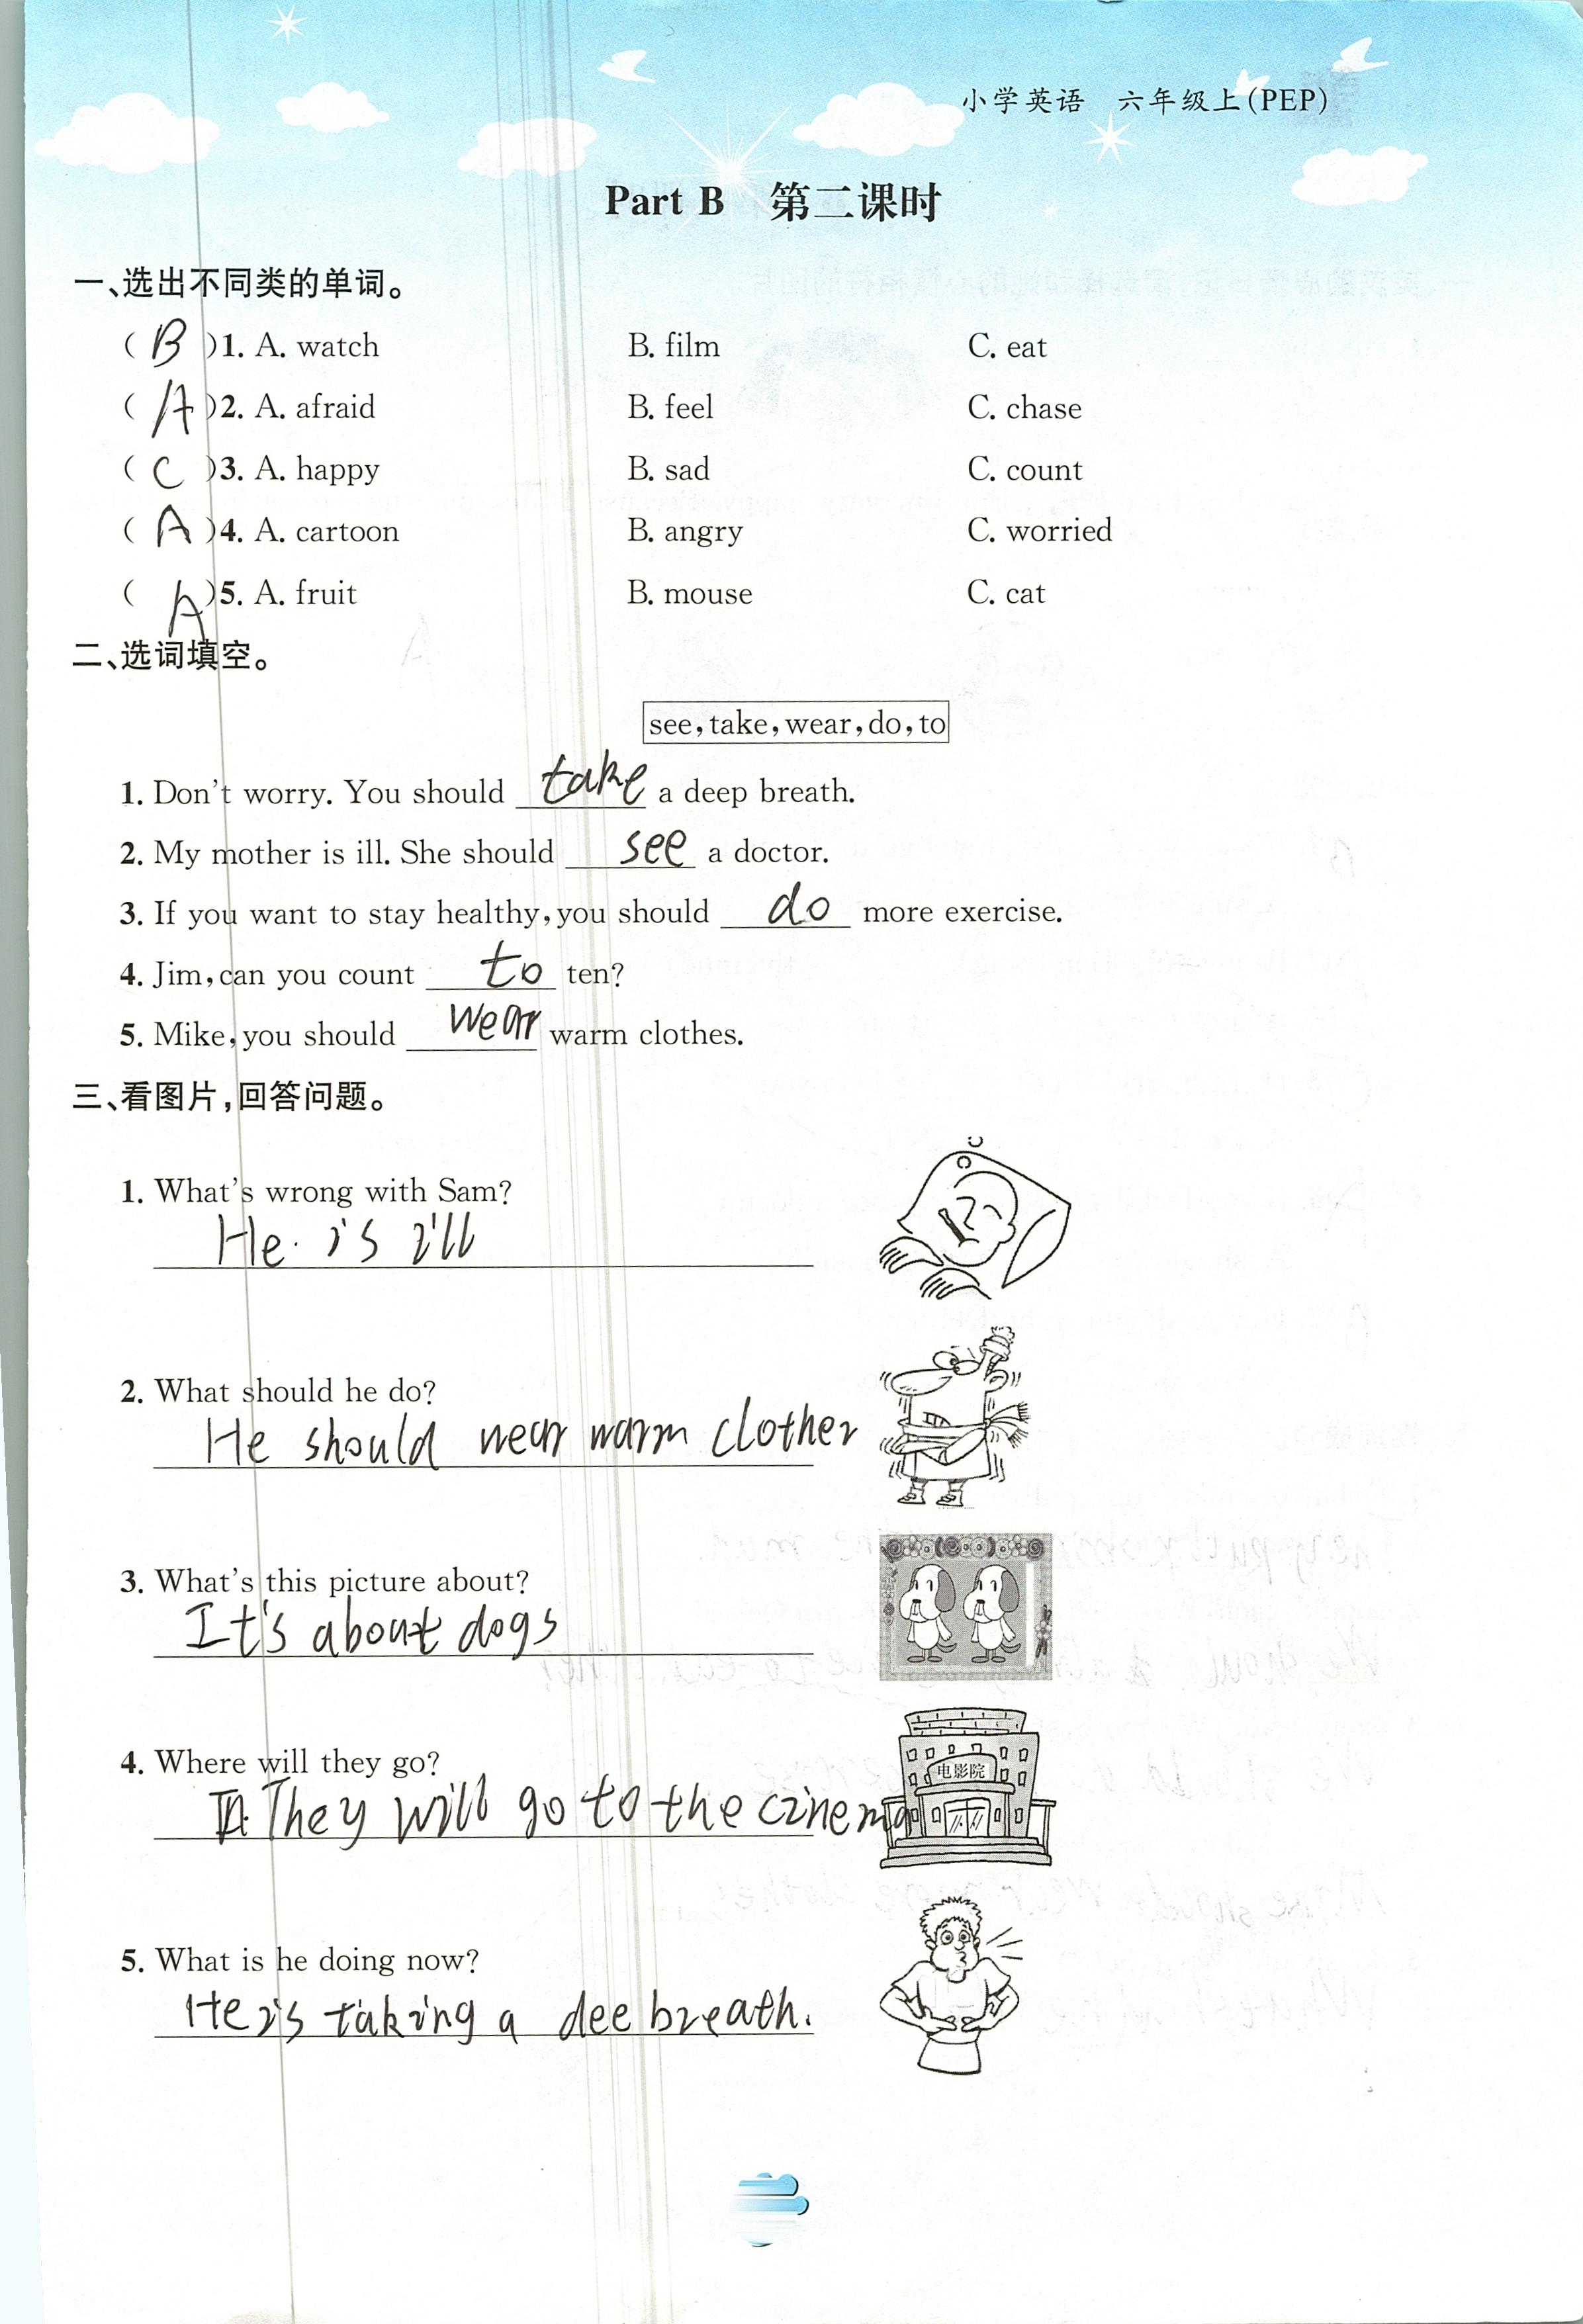 小学英语 六年级上(PEP)
Part B 第二课时
一、选出不同类的单词。
( B )1. A. watch B. film C. eat
( A )2. A. afraid B. feel C. chase
( C )3. A. happy B. sad C. count
( A )4. A. cartoon B. angry C. worried
( A )5. A. fruit B. mouse C. cat
二、选词填空。
see, take, wear, do, to
1. Don't worry. You should take a deep breath.
2. My mother is ill. She should see a doctor.
3. If you want to stay healthy, you should do more exercise.
4. Jim, can you count to ten?
5. Mike, you should wear warm clothes.
三、看图片,回答问题。
1. What's wrong with Sam?
He. is ill
2. What should he do?
He should wear warm clother
3. What's this picture about?
It's about dogs
4. Where will they go?
They will go to the cinema
电影院
5. What is he doing now?
He is taking a dee breath.